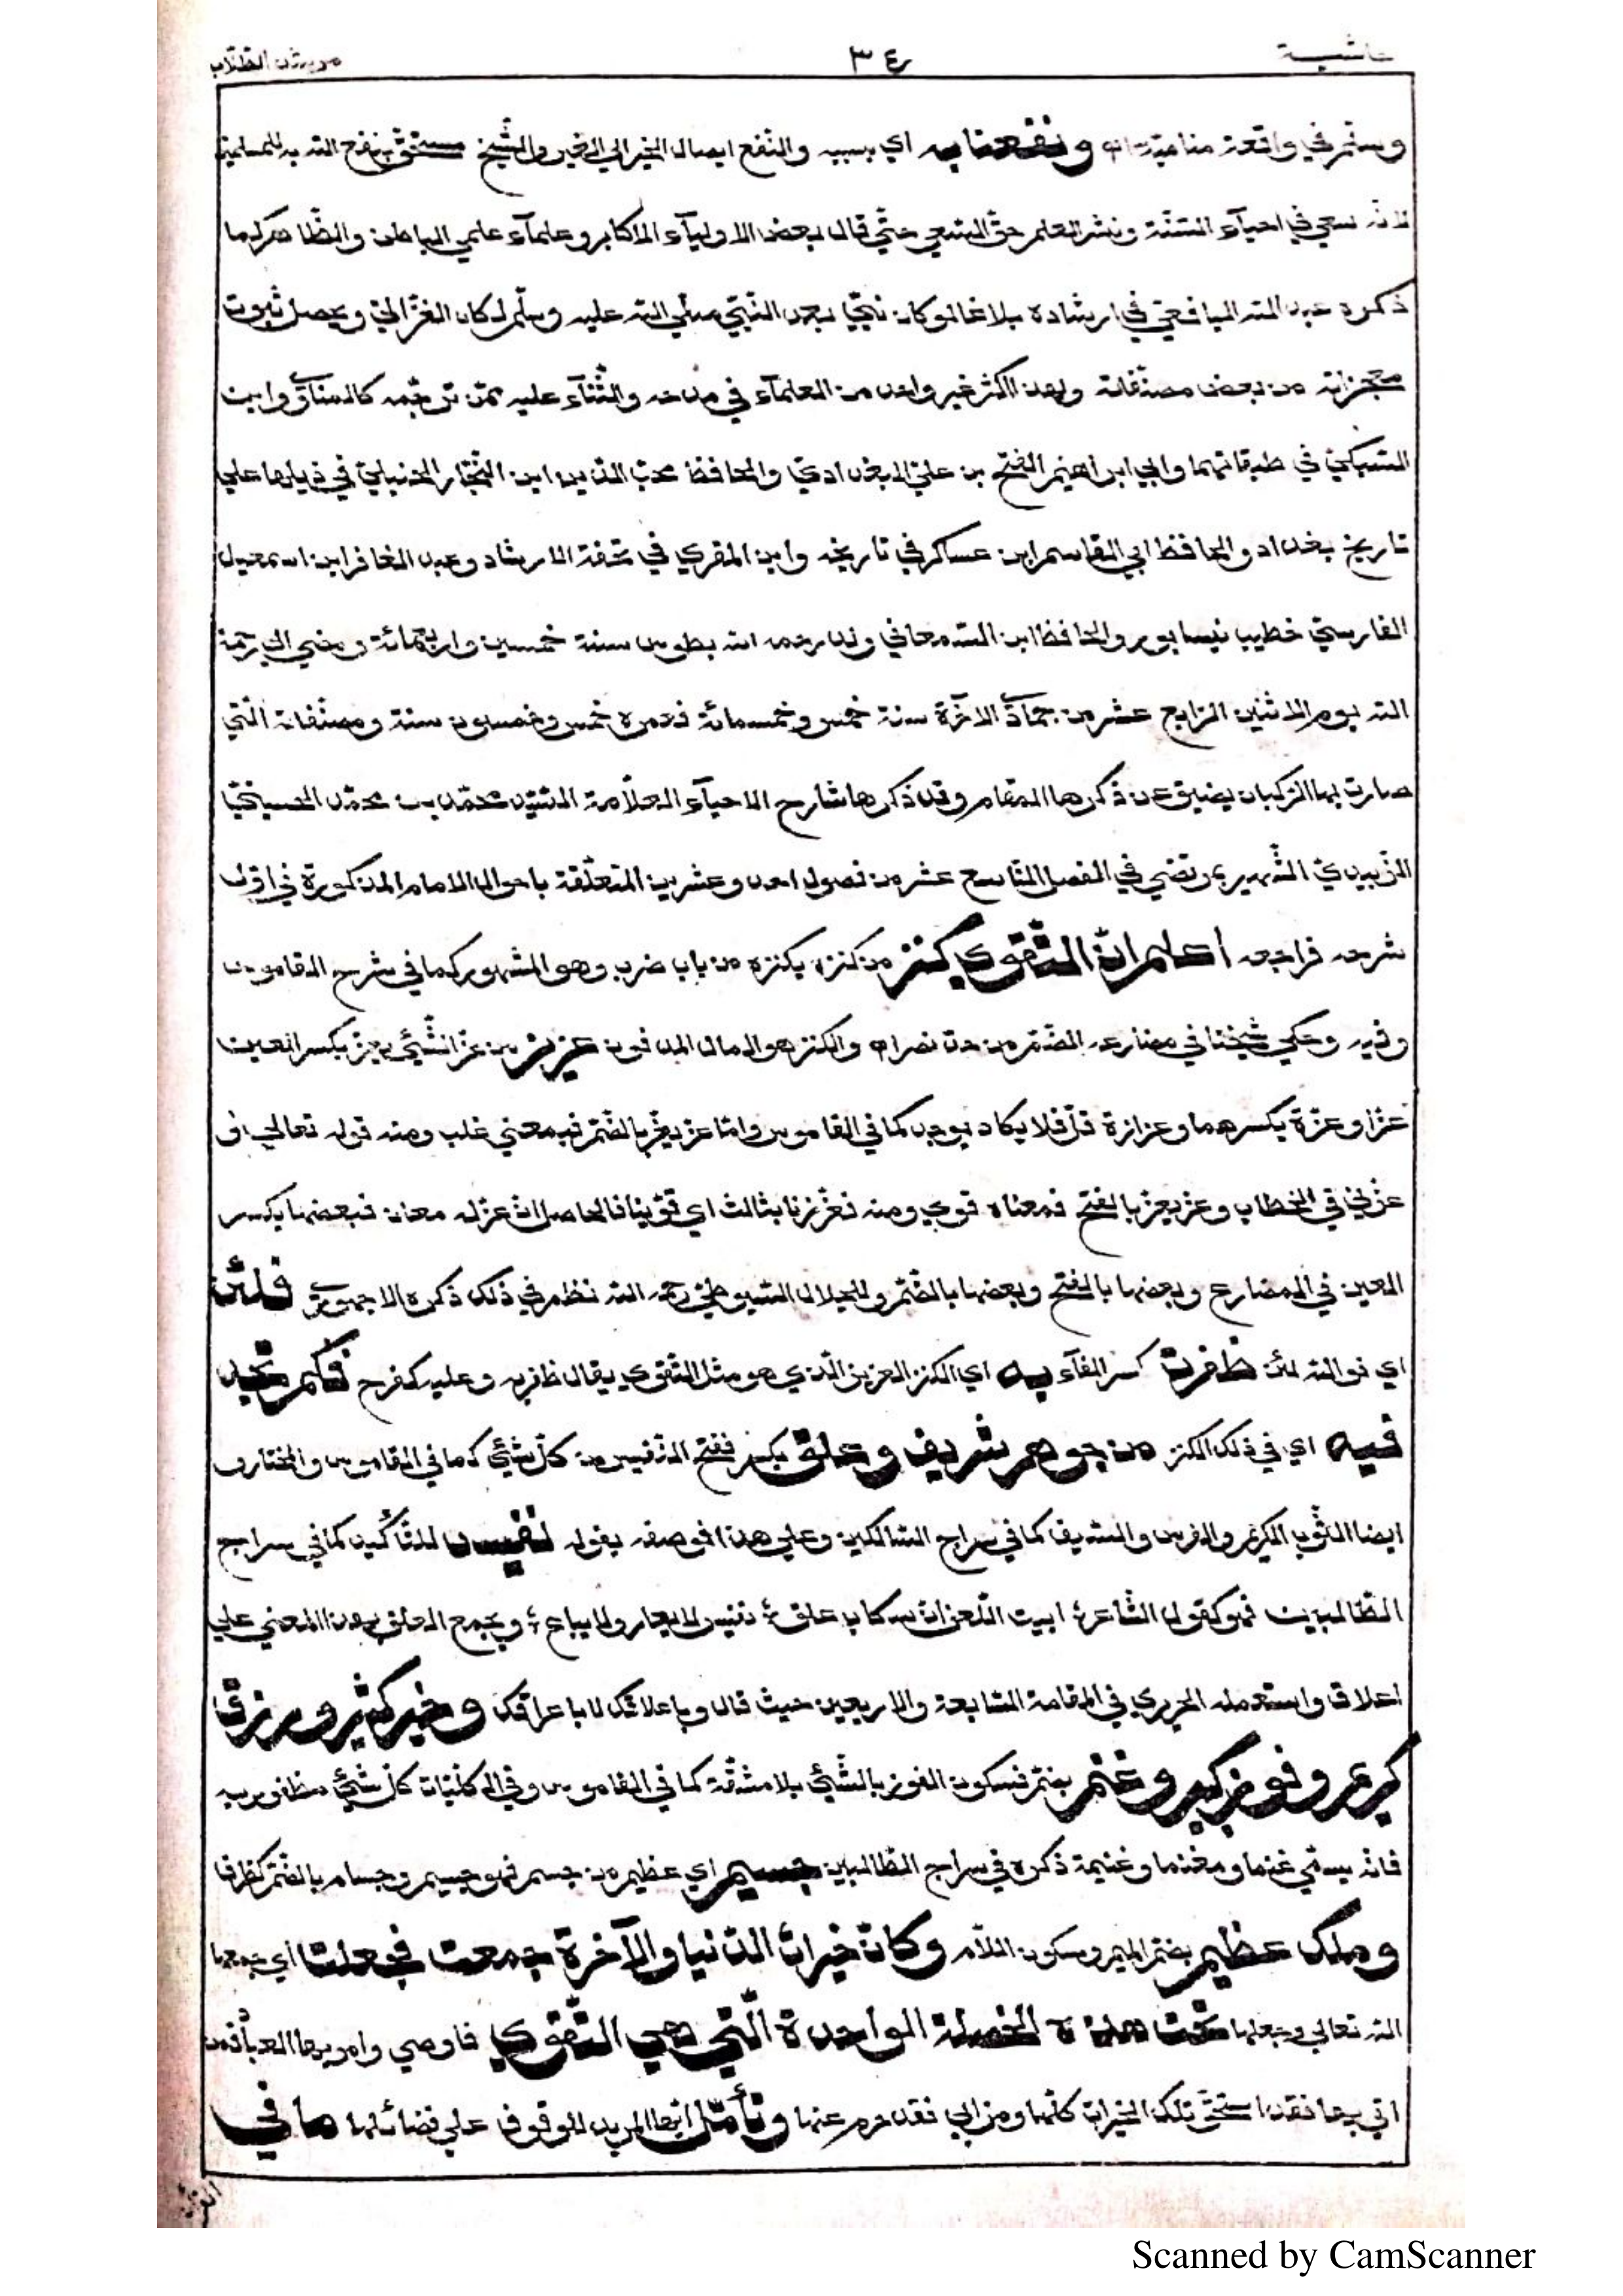 حاشية ٣٤ مرشد الطلاب
وستمر في واقعة منامية اه ونفعنا به اي بسببه والنفع ايصال الخير الي الغير والشيخ مستحق بنفع الله به للمسلمين
لانه سعي في احيآء السنة ونشر العلم حق السعي حتي قال بعض الاوليآء الاكابر وعلمآء علمي الباطن والظاهر كما
ذكره عبد الله اليافعي في ارشاده بلاغا لو كان نبي بعد النبي صلي الله عليه وسلم لكان الغزالي ويحصل ثبوت
معجزاته من بعض مصنفاته ولهذا اكثر غير واحد من العلمآء في مدحه والثنآء عليه ممن ترجمه كالمناوي وابن
السبكي في طبقاتهما وابي ابراهيم الفتح بن علي البغدادي والحافظ محب الدين ابن النجار الحنبلي في ذيلها علي
تاريخ بغداد والحافظ ابي القاسم ابن عساكر في تاريخه وابن المقري في تحفة الارشاد وعبد الغافر ابن اسمعيل
الفارسي خطيب نيسابور والحافظ ابن السمعاني ولد رحمه الله بطوس سنة خمسين واربعمائة ومضي الي رحمة
الله يوم الاثنين الرابع عشر من جمادي الاخرة سنة خمس وخمسمائة فعمره خمس وخمسون سنة ومصنفاته التي
صارت بها الركبان يضيق عن ذكرها المقام وقد ذكرها شارح الاحيآء العلامة السيد محمد بن محمد الحسيني
الزبيدي الشهير بمرتضي في الفصل التاسع عشر من فصول احد وعشرين المتعلقة باحوال الامام المذكورة في اول
شرحه فراجعه اعلم ان التقوي كنز من كنزه يكنزه من باب ضرب وهو المشهور كما في شرح القاموس
وفيه وحكي شيخنا في مضارعه الضم من حد نصر اه والكنز هو المال المدفون عزيز من عز الشئي يعز بكسر العين
عزا وعزة بكسرهما وعزازة قل فلا يكاد يوجد كما في القاموس واما عز يعز بالضم فبمعني غلب ومنه قوله تعالي
عزني في الخطاب وعز يعز بالفتح فمعناه قوي ومنه فعززنا بثالث اي قوينا فالحاصل ان عز له معان فبعضها بكسر
العين في المضارع وبعضها بالفتح وبعضها بالضم وللجلال السيوطي رحمه الله نظم في ذلك ذكره الاجهوري فلئن
اي فوالله لئن ظفرت كسر الفآء به اي الكنز العزيز الذي هو مثل التقوي يقال ظفر به وعليه كفرح فكم تجد
فيه اي في ذلك الكنز من جوهر شريف وعلق بكسر ففتح النفيس من كل شئي كما في القاموس والمختار
ايضا الثوب الكريم والفرس والسيف كما في سراج السالكين وعلي هذا فوصفه بقوله نفيس للتأكيد كما في سراج
الطالبين فهو كقول الشاعر ابيت اللعن ان سكاب علق نفيس لا يعار ولا يباع ويجمع العلق بهذا المعني علي
اعلاق واستعمله الحريري في المقامة السابعة والاربعين حيث قال وباعلاقك لا باعراقك وخير كثير ورزق
كريم وفوز كبير وغنم بضم فسكون الفوز بالشئي بلا مشقة كما في القاموس وفي الكليات كل شئي مظفور به
فانه يسمي غنما ومغنما وغنيمة ذكره في سراج الطالبين جسيم اي عظيم من جسم فهو جسيم وجسام بالضم كظراف
وملك عظيم بضم الميم وسكون اللام وكان خيرات الدنيا والآخرة جمعت فجعلت اي جمعها
الله تعالي وجعلها تحت هذه الخصلة الواحدة التي هي التقوي فاوصي وامر بها العباد فمن
اتي بها فقد استحق تلك الخيرات كلها ومن ابي فقد حرم عنها وتأمل ايها المريد للوقوف علي فضائلها ما في
القرآن
Scanned by CamScanner